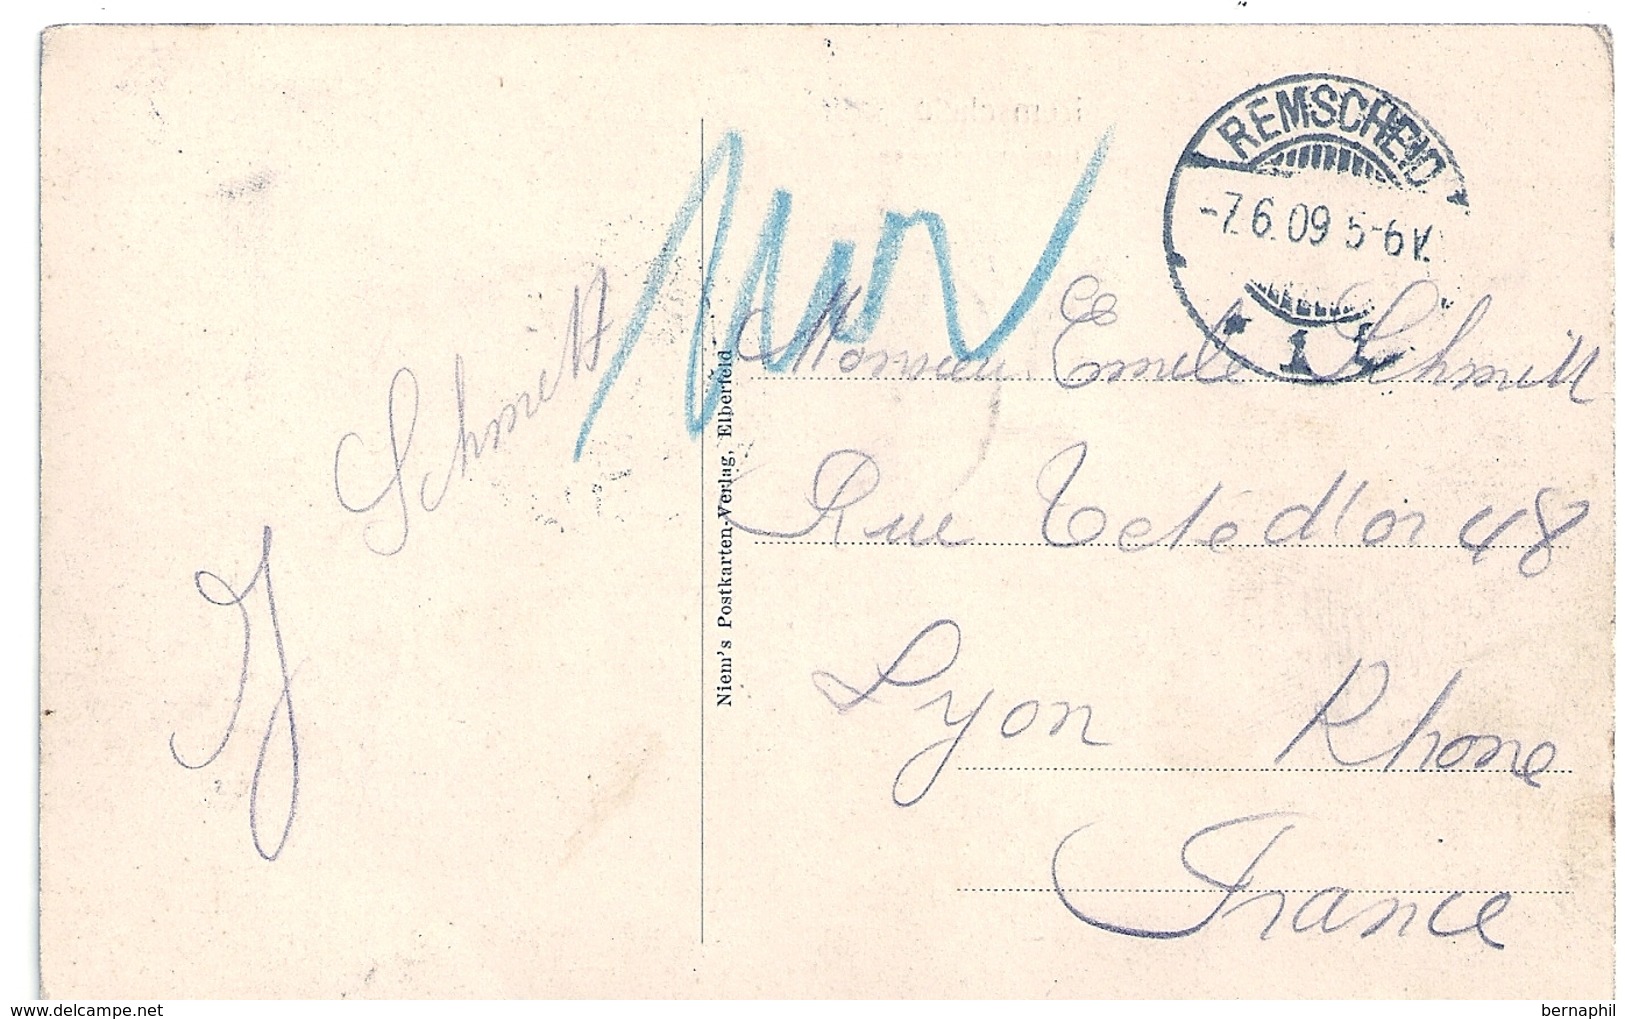 REMSCHEID
-7.6.09 5-6V.
* 1 t
J Schmitt
Monsieur Emile Schmitt
Rue Tete d'or 48
Lyon Rhone
France
Niem's Postkarten-Verlag, Elberfeld
www.delcampe.net
bernaphil